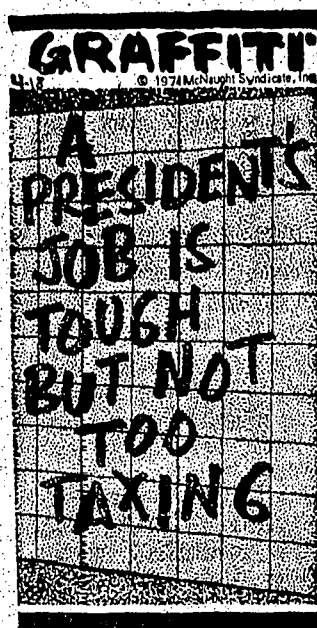 GRAFFITI
4-18 © 1974 McNaught Syndicate, Inc
A
PRESIDENT'S
JOB IS
TOUGH
BUT NOT
TOO
TAXING